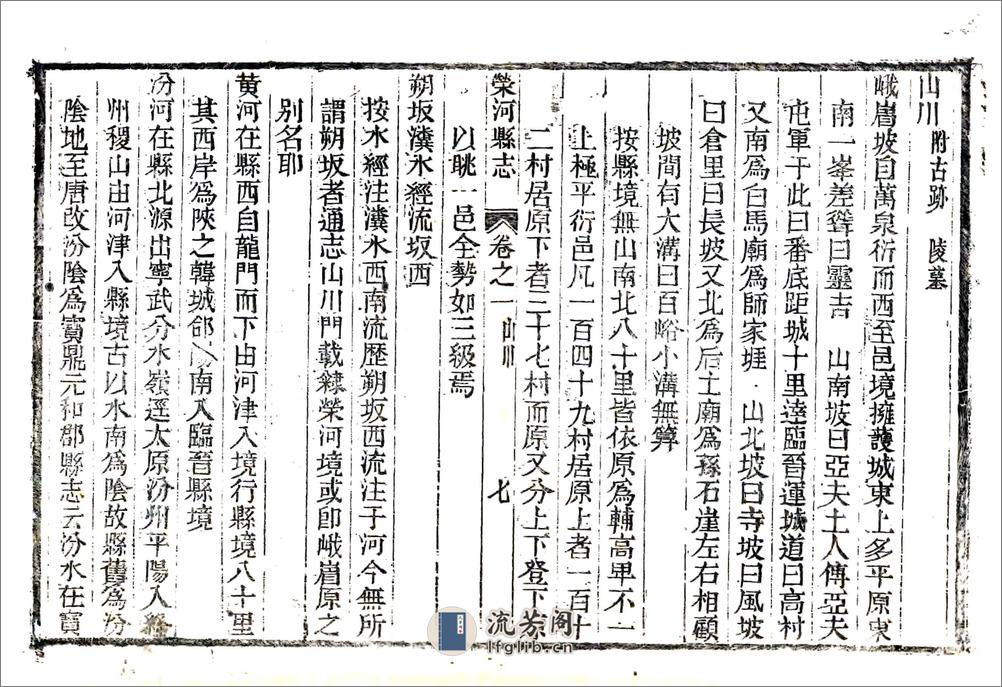 山川 附古跡 陵墓
峨嵋坡自萬泉衍而西至邑境擁護城東上多平原東
南一峯差聳曰靈吉 山南坡曰亞夫土人傳亞夫
屯軍于此曰番底距城十里達臨晉運城道曰高村
又南爲白馬廟爲師家堐 山北坡曰寺坡曰風坡
曰倉里曰長坡又北爲后土廟爲孫石崖左右相顧
坡間有大溝曰百峪小溝無算
按縣境無山南北八十里皆依原爲輔高卑不一
上極平衍邑凡一百四十九村居原上者一百十
二村居原下者三十七村而原又分上下登下原
榮河縣志 卷之一 山川 七
以眺一邑全勢如三級焉
朔坂瀵水經流坂西
按水經注瀵水西南流歷朔坂西流注于河今無所
謂朔坂者通志山川門載隸榮河境或卽峨嵋原之
別名耶
黃河在縣西自龍門而下由河津入境行縣境八十里
其西岸爲陝之韓城郃陽南入臨晉縣境
汾河在縣北源出寧武分水嶺逕太原汾州平陽入絳
州稷山由河津入縣境古以水南爲陰故縣舊爲汾
陰地至唐改汾陰爲寶鼎元和郡縣志云汾水在寶
流芳阁
lfglib.cn